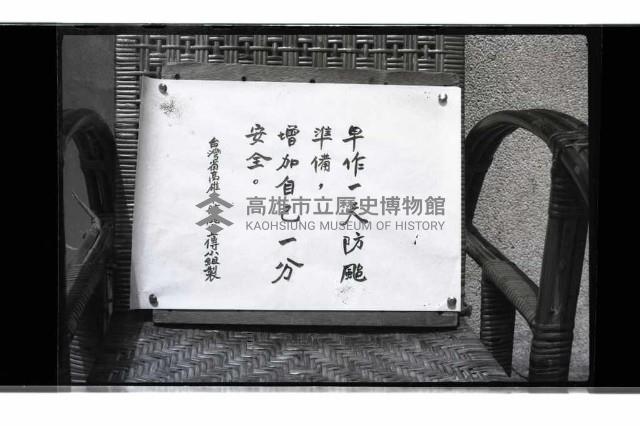 早作一天防颱
準備，
增加自己一分
安全。
台灣省高雄
傳小組製
高雄市立歷史博物館
KAOHSIUNG MUSEUM OF HISTORY